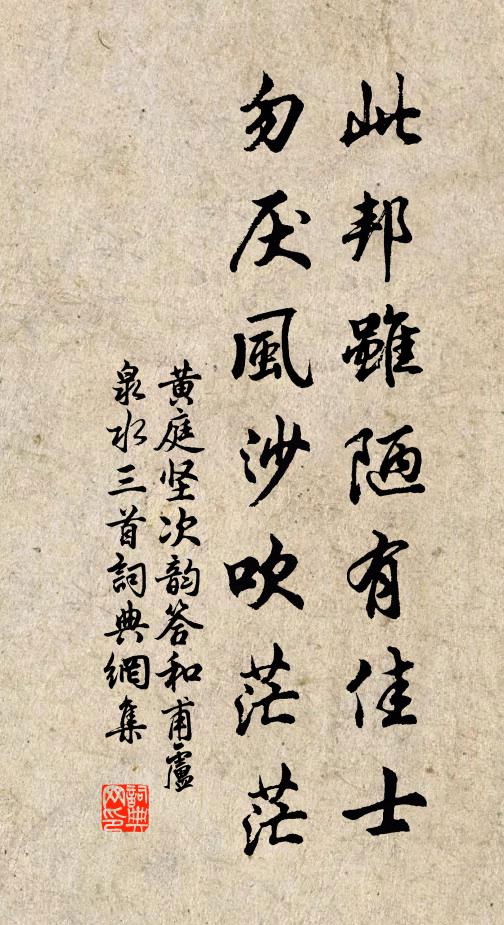 此邦雖陋有佳士
勿厌風沙吹茫茫
黄庭坚次韵答和甫盧
泉水三首詞典網集
詞典
网印